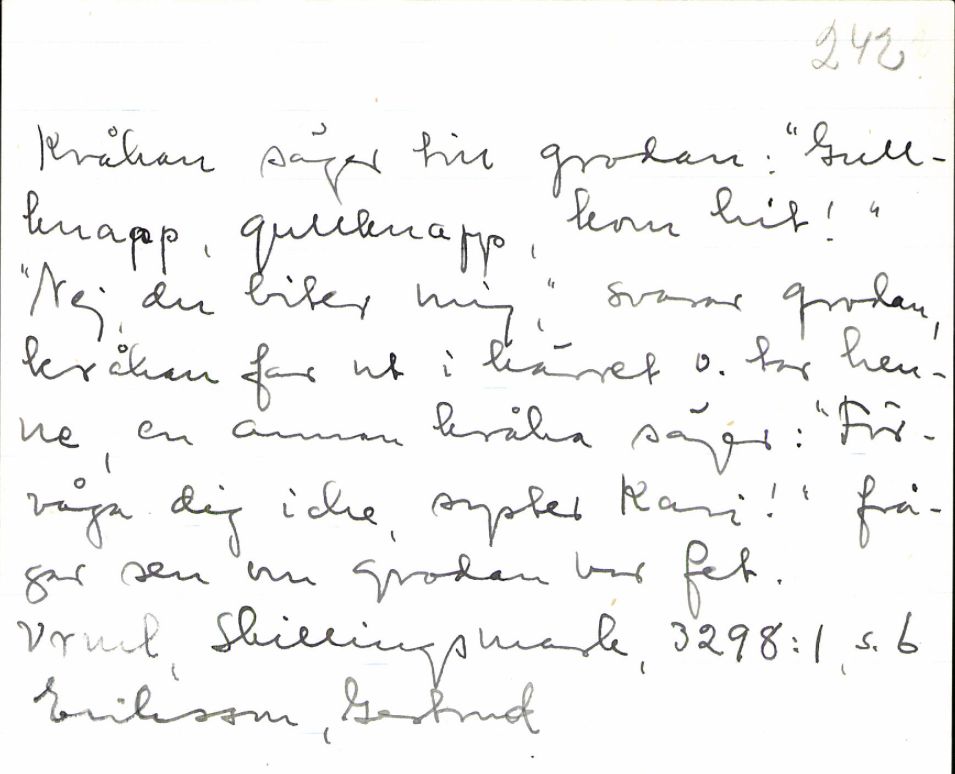 242
Kråkan säger till grodan: "Gull-
knapp, gullknapp, kom hit!"
"Nej, du biter mig," svarar grodan,
kråkan far ut i kärret o. tar hen-
ne, en annan kråka säger: "För-
våga dig icke, syster Kari!" frå-
gar sen om grodan var fet.
Vrml, Skillingsmark, 3298:1, s. 6
Eriksson, Gertrud